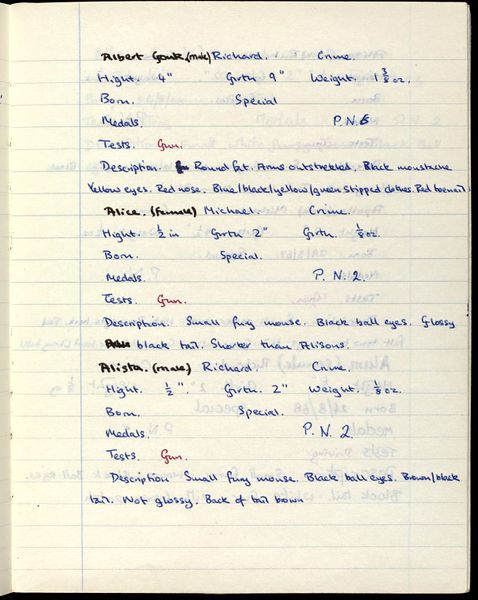 Albert Gonk (male) Richard. Crime.
Hight. 4" Girth 9" Weight. 1 3/8 oz.
Born. Special
Medals. P.N. 6
Tests. Gun.
Description. Round fat. Arms outstretched. Black moustache
Yellow eyes. Red nose. Blue/black/yellow/green stripped clothes. Red toenail
Alice. (female) Michael Crime.
Hight. 1/2 in Girth 2" Girth. 1/8 oz.
Born. Special.
Medals. P.N. 2.
Tests. Gun.
Description. Small furry mouse. Black ball eyes. Glossy
black tail. Shorter than Alisons.
Alista. (male) Richard. Crime.
Hight. 1/2". Girth. 2" Weight. 1/8 oz.
Born. Special.
Medals. P.N. 2
Tests. Gun.
Description Small furry mouse. Black ball eyes. Brown/black
tail. Not glossy. Back of tail brown